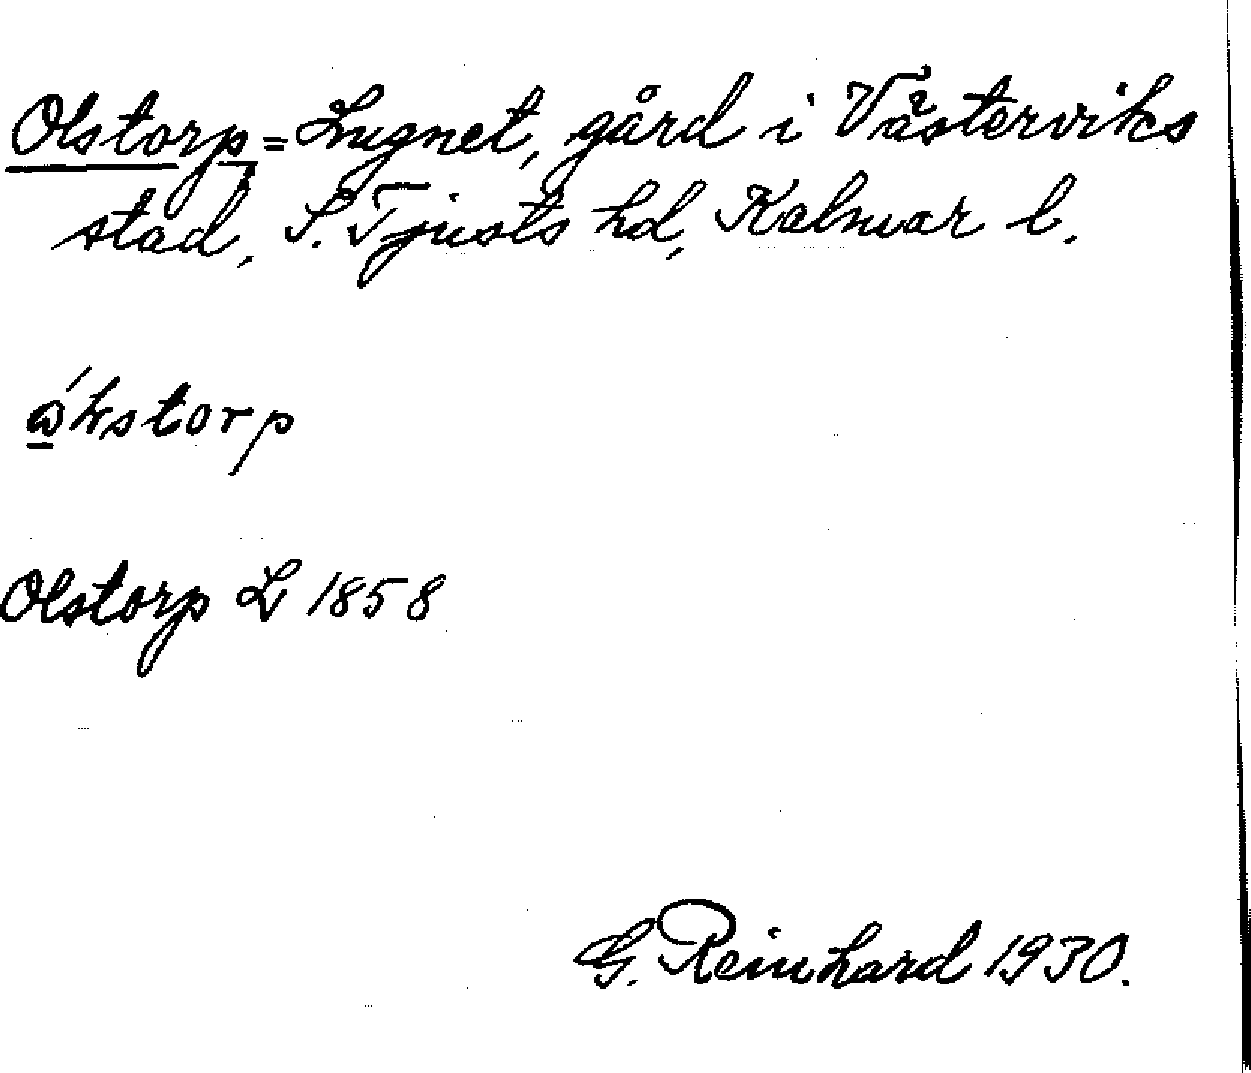 Olstorp = Lugnet, gård i Västerviks
stad, S. Tjusts hd, Kalmar l.
Olstorp L 1858
G. Reinhard 1930.